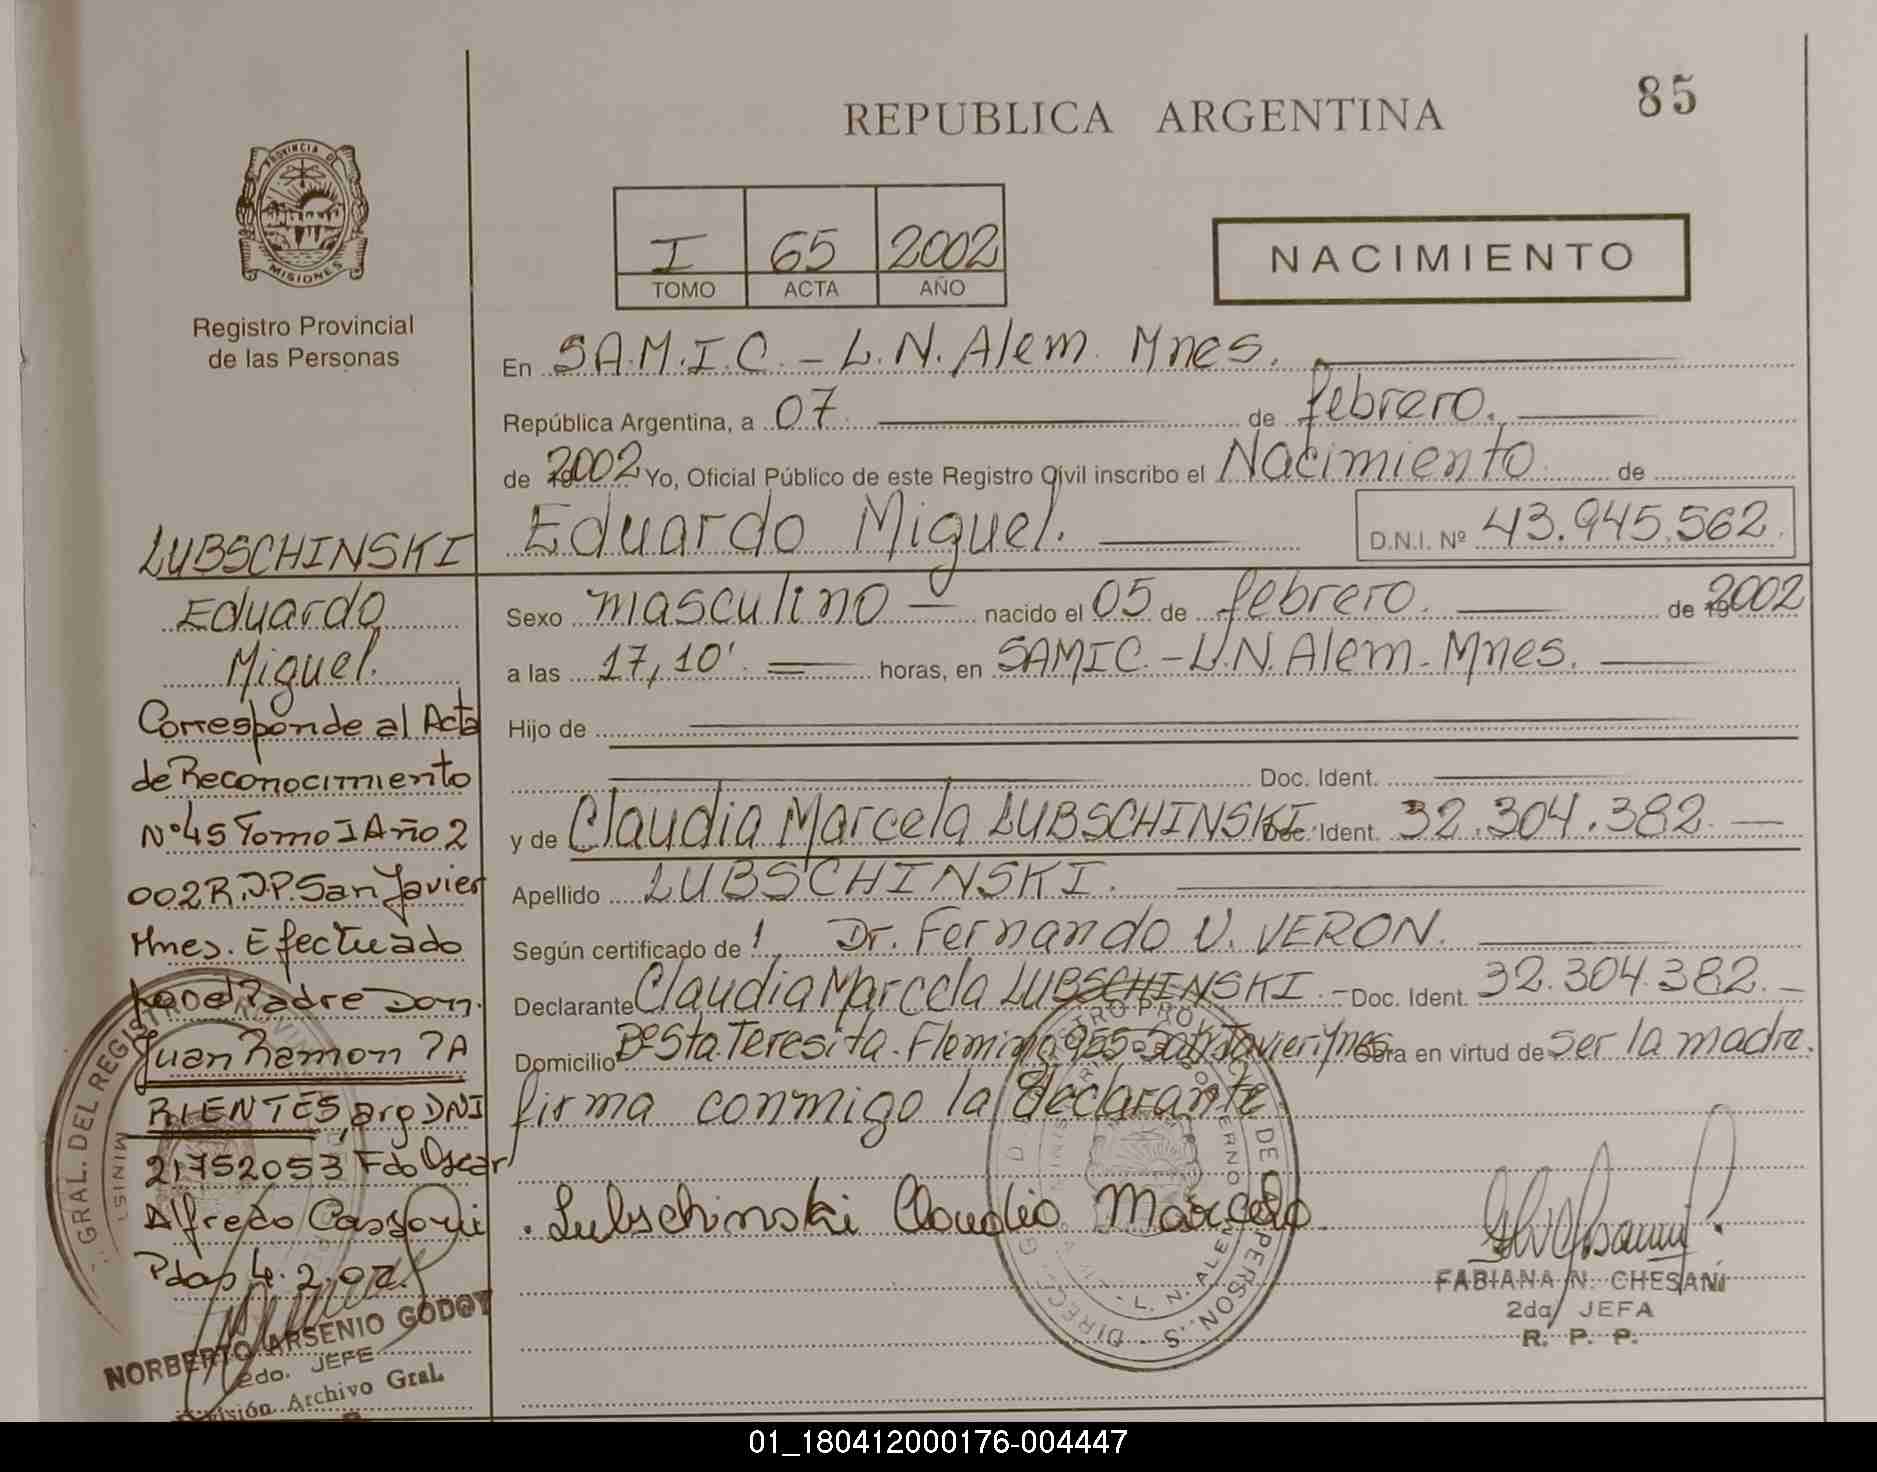 85
REPUBLICA ARGENTINA
PROVINCIA DE
MISIONES
Registro Provincial
de las Personas
I 65 2002
TOMO ACTA AÑO
NACIMIENTO
En S.A.M.I.C. - L.N. Alem. Mnes.
República Argentina, a 07 de febrero.
de 2002 Yo, Oficial Público de este Registro Civil inscribo el Nacimiento de
Eduardo Miguel. D.N.I. Nº 43.945.562.
Sexo masculino nacido el 05 de febrero. de 2002
a las 17,10' horas, en SAMIC. - L.N. Alem - Mnes.
Hijo de
Doc. Ident.
y de Claudia Marcela LUBSCHINSKI Doc. Ident. 32.304.382.
Apellido LUBSCHINSKI.
Según certificado de Dr. Fernando V. VERON.
Declarante Claudia Marcela LUBSCHINSKI. - Doc. Ident. 32.304.382.
Domicilio Bº Sta. Teresita. Fleming 955 San Javier Mnes. Obra en virtud de ser la madre.
firma conmigo la declarante
Lubschinski Claudia Marcela
FABIANA N. CHESANI
2da JEFA
R. P. P.
L. N. ALEM
LUBSCHINSKI
Eduardo
Miguel.
Corresponde al Acta
de Reconocimiento
Nº 45 Tomo I Año 2
002 R.P.P. San Javier
Mnes. Efectuado
por el Padre Don.
Juan Ramon PA
RIENTES, arg DNI
21752053 Fdo Oscar
Alfredo
Pdas 4.2.02.
GRAL. DEL REGISTR
MINIST
NORBERTO ARSENIO GODOY
2do. JEFE
División Archivo Gral.
01_180412000176-004447